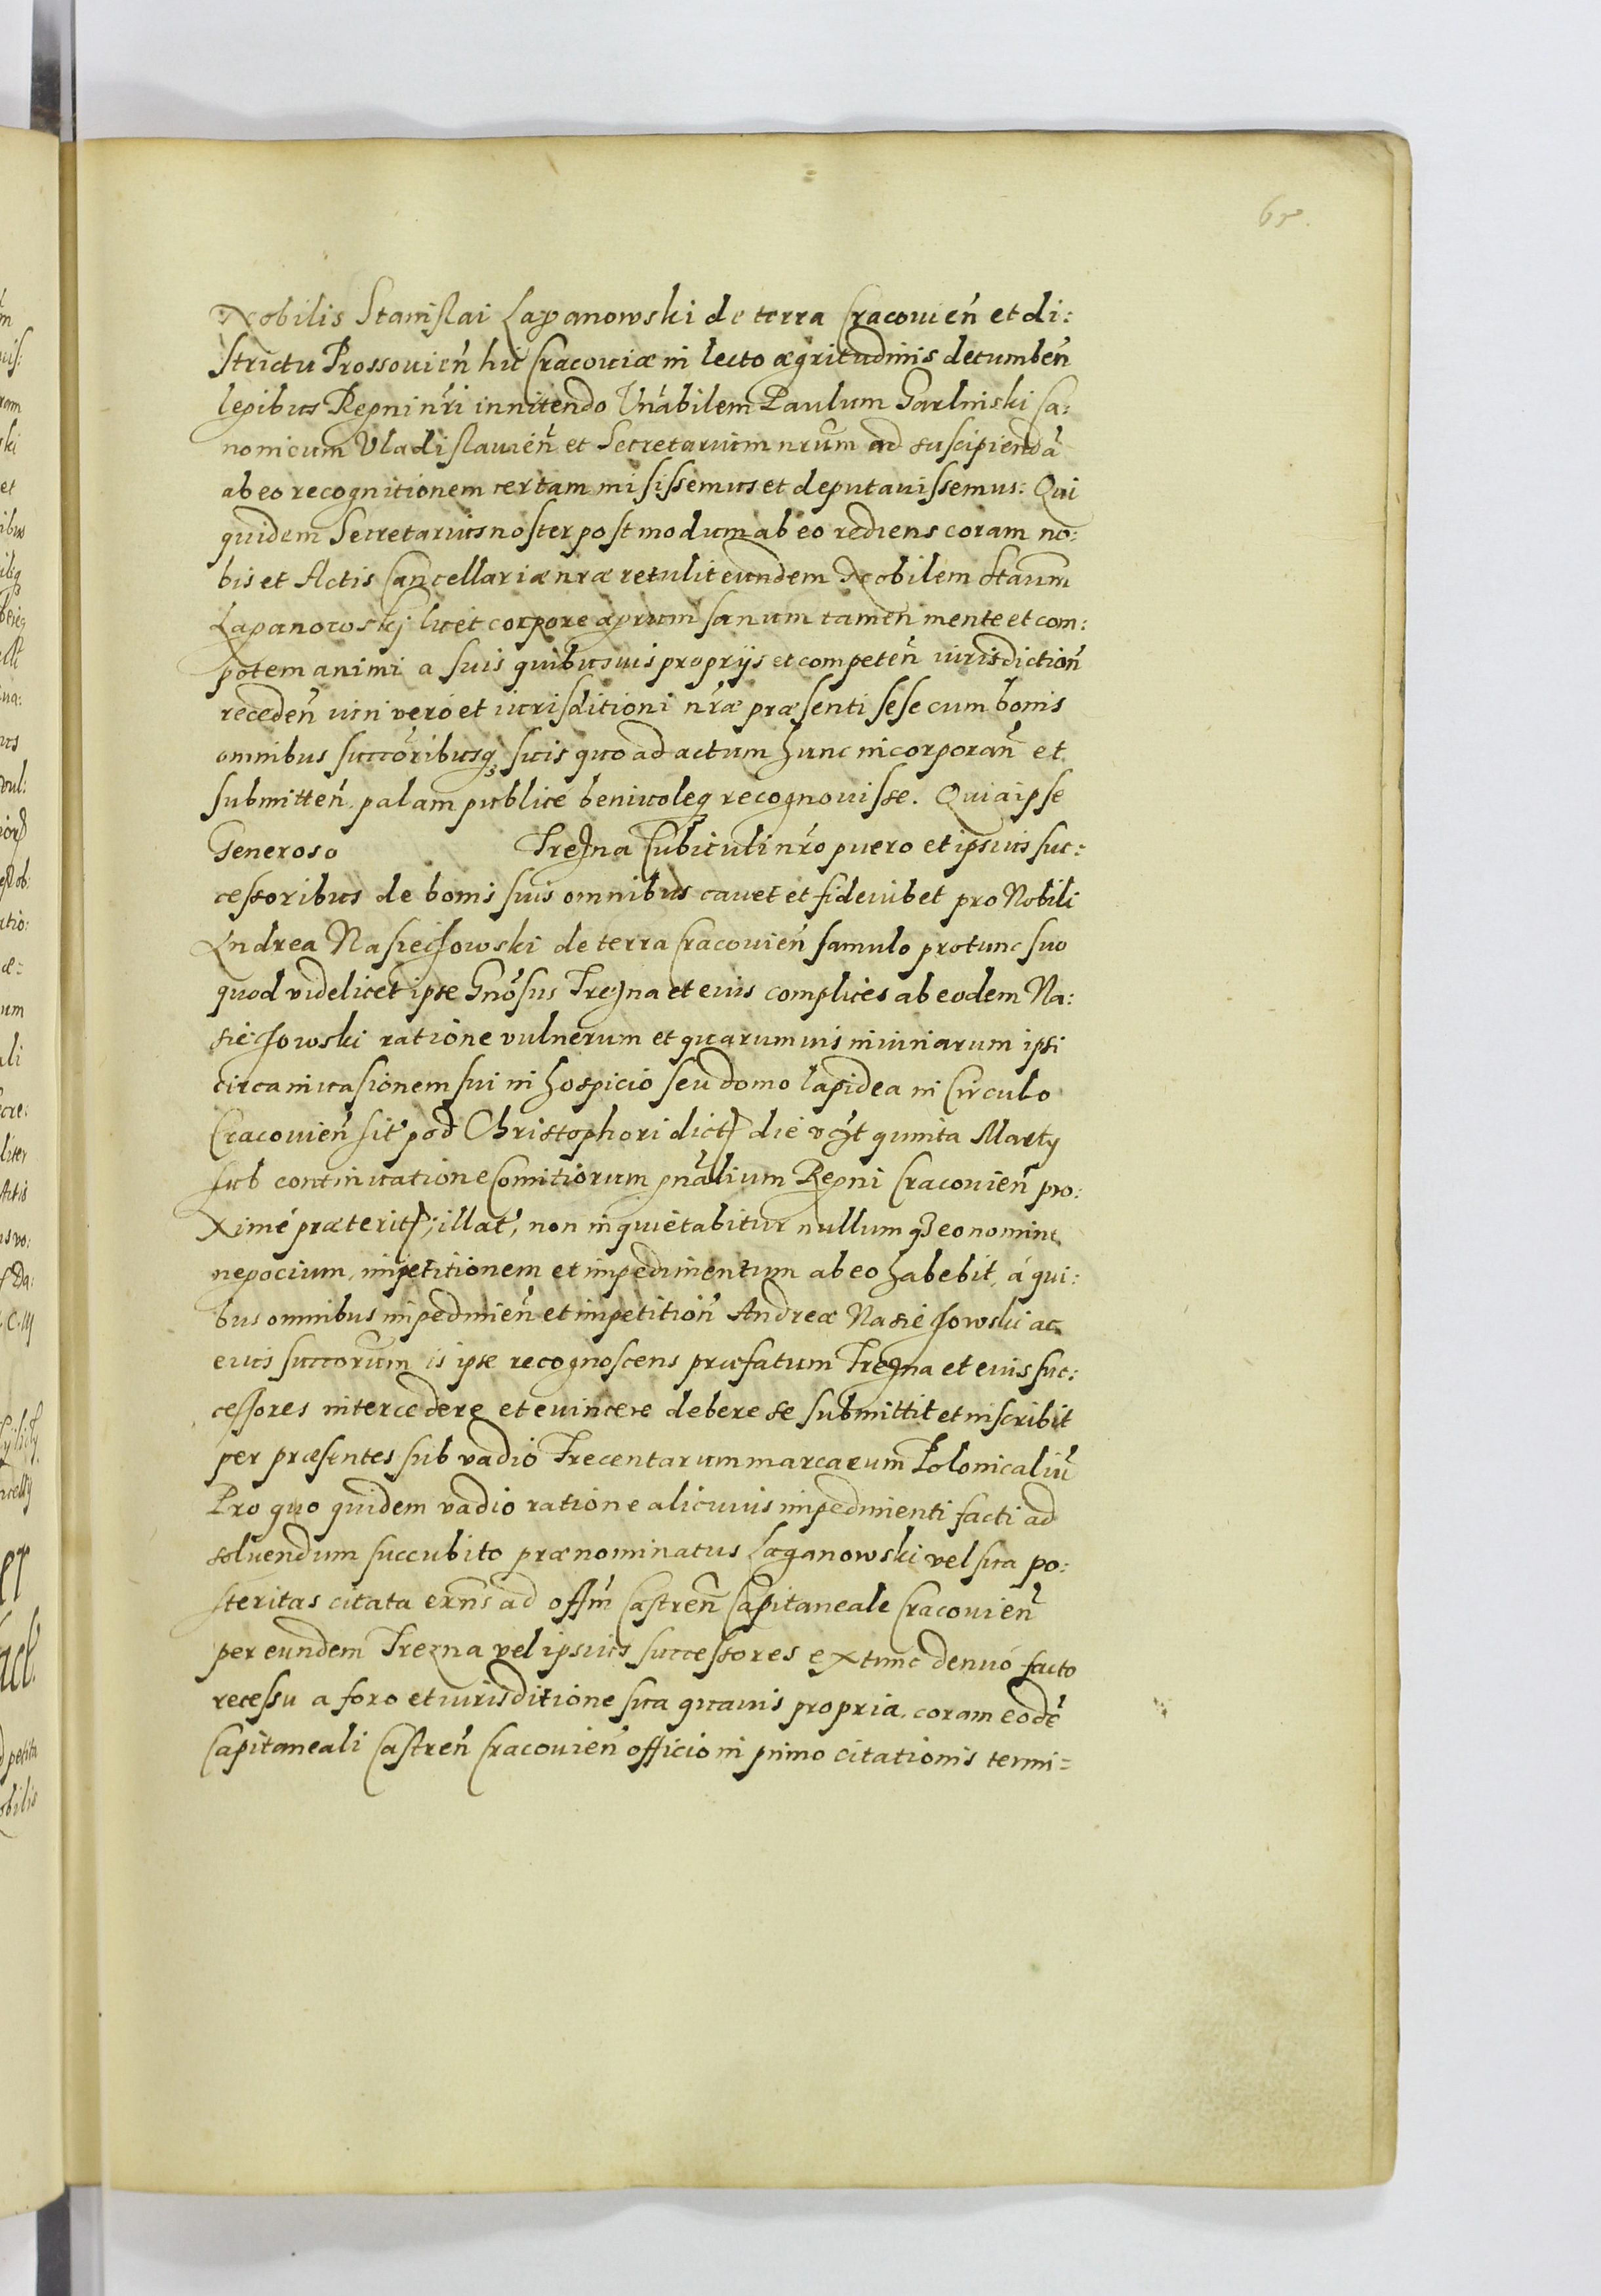 65.
Nobilis Stanislai Lapanowski de terra Cracouień et di:
strictu Prossouień hic Cracouiæ in lecto ægritudinis decumbeń
legibus Regni nr̃i innitendo Vnãbilem Paulum Garlinski Ca:
nonicum Vladislauień et Secretarium nrũm ad suscipiendã
ab eo recognitionem certam misissemus et deputauissemus: Qui
quidem Secretarius noster postmodum ab eo rediens coram no:
bis et Actis Cancellariæ nræ retulit eundem Nobilem Staũm
Lapanowskj licet corpore ægrum sanum tamen mente et com:
potem animi a suis quibusuis proprijs et competeń iurisdictioń
recedeń uini veró et iurisditioni nr̃æ præsenti sese cum bonis
omnibus succoribusq; suis quo ad actum hunc incorporań et
submitteń palam publicé beniuoleq recognouisse. Quia ipse
Generoso Trezna Cubiculi nr̃o puero et ipsius suc:
cessoribus de bonis suis omnibus cauet et fideiubet pro Nobili
Andrea Nasiechowski de terra Cracouień famulo protunc suo
quod videlicet ipse Gnõsus Trezna et eius complices ab eodem Na:
siechowski ratione vulnerum et quarumuis iniuriarum ipsi
circa inuasionem sui in hospicio seu domo lapidea in Circulo
Cracouień sit' pod Christophori dict die vi͠gt quinta Marty
sub continuatione Comitiorum gnãlium Regni Cracouień pro:
ximé præterit, illat', non inquietabitur nullumqȝ eo nomine
negocium, impetitionem et impedimentum ab eo habebit, á qui:
bus omnibus impedimeń et impetitioń Andreæ Nasiechowski ac
eius succorũm is ipse recognoscens præfatum Trezna et eius suc:
cessores intercedere et euincere debere se submittit et inscribit
per præsentes sub vadio Trecentarum marcarum Polonicaliũ
Pro quo quidem vadio ratione alicuius impedimenti facti ad
soluendum succubito prænominatus Laganowski vel sua po:
steritas citata exñs ad offm̃ Castreń Capitaneale Cracouień
per eundem Trezna vel ipsius successores extunc denuó facto
recessu a foro et iurisditione sua quauis propria, coram eodẽ
Capitaneali Castreń Cracouień officio in primo citationis termi=